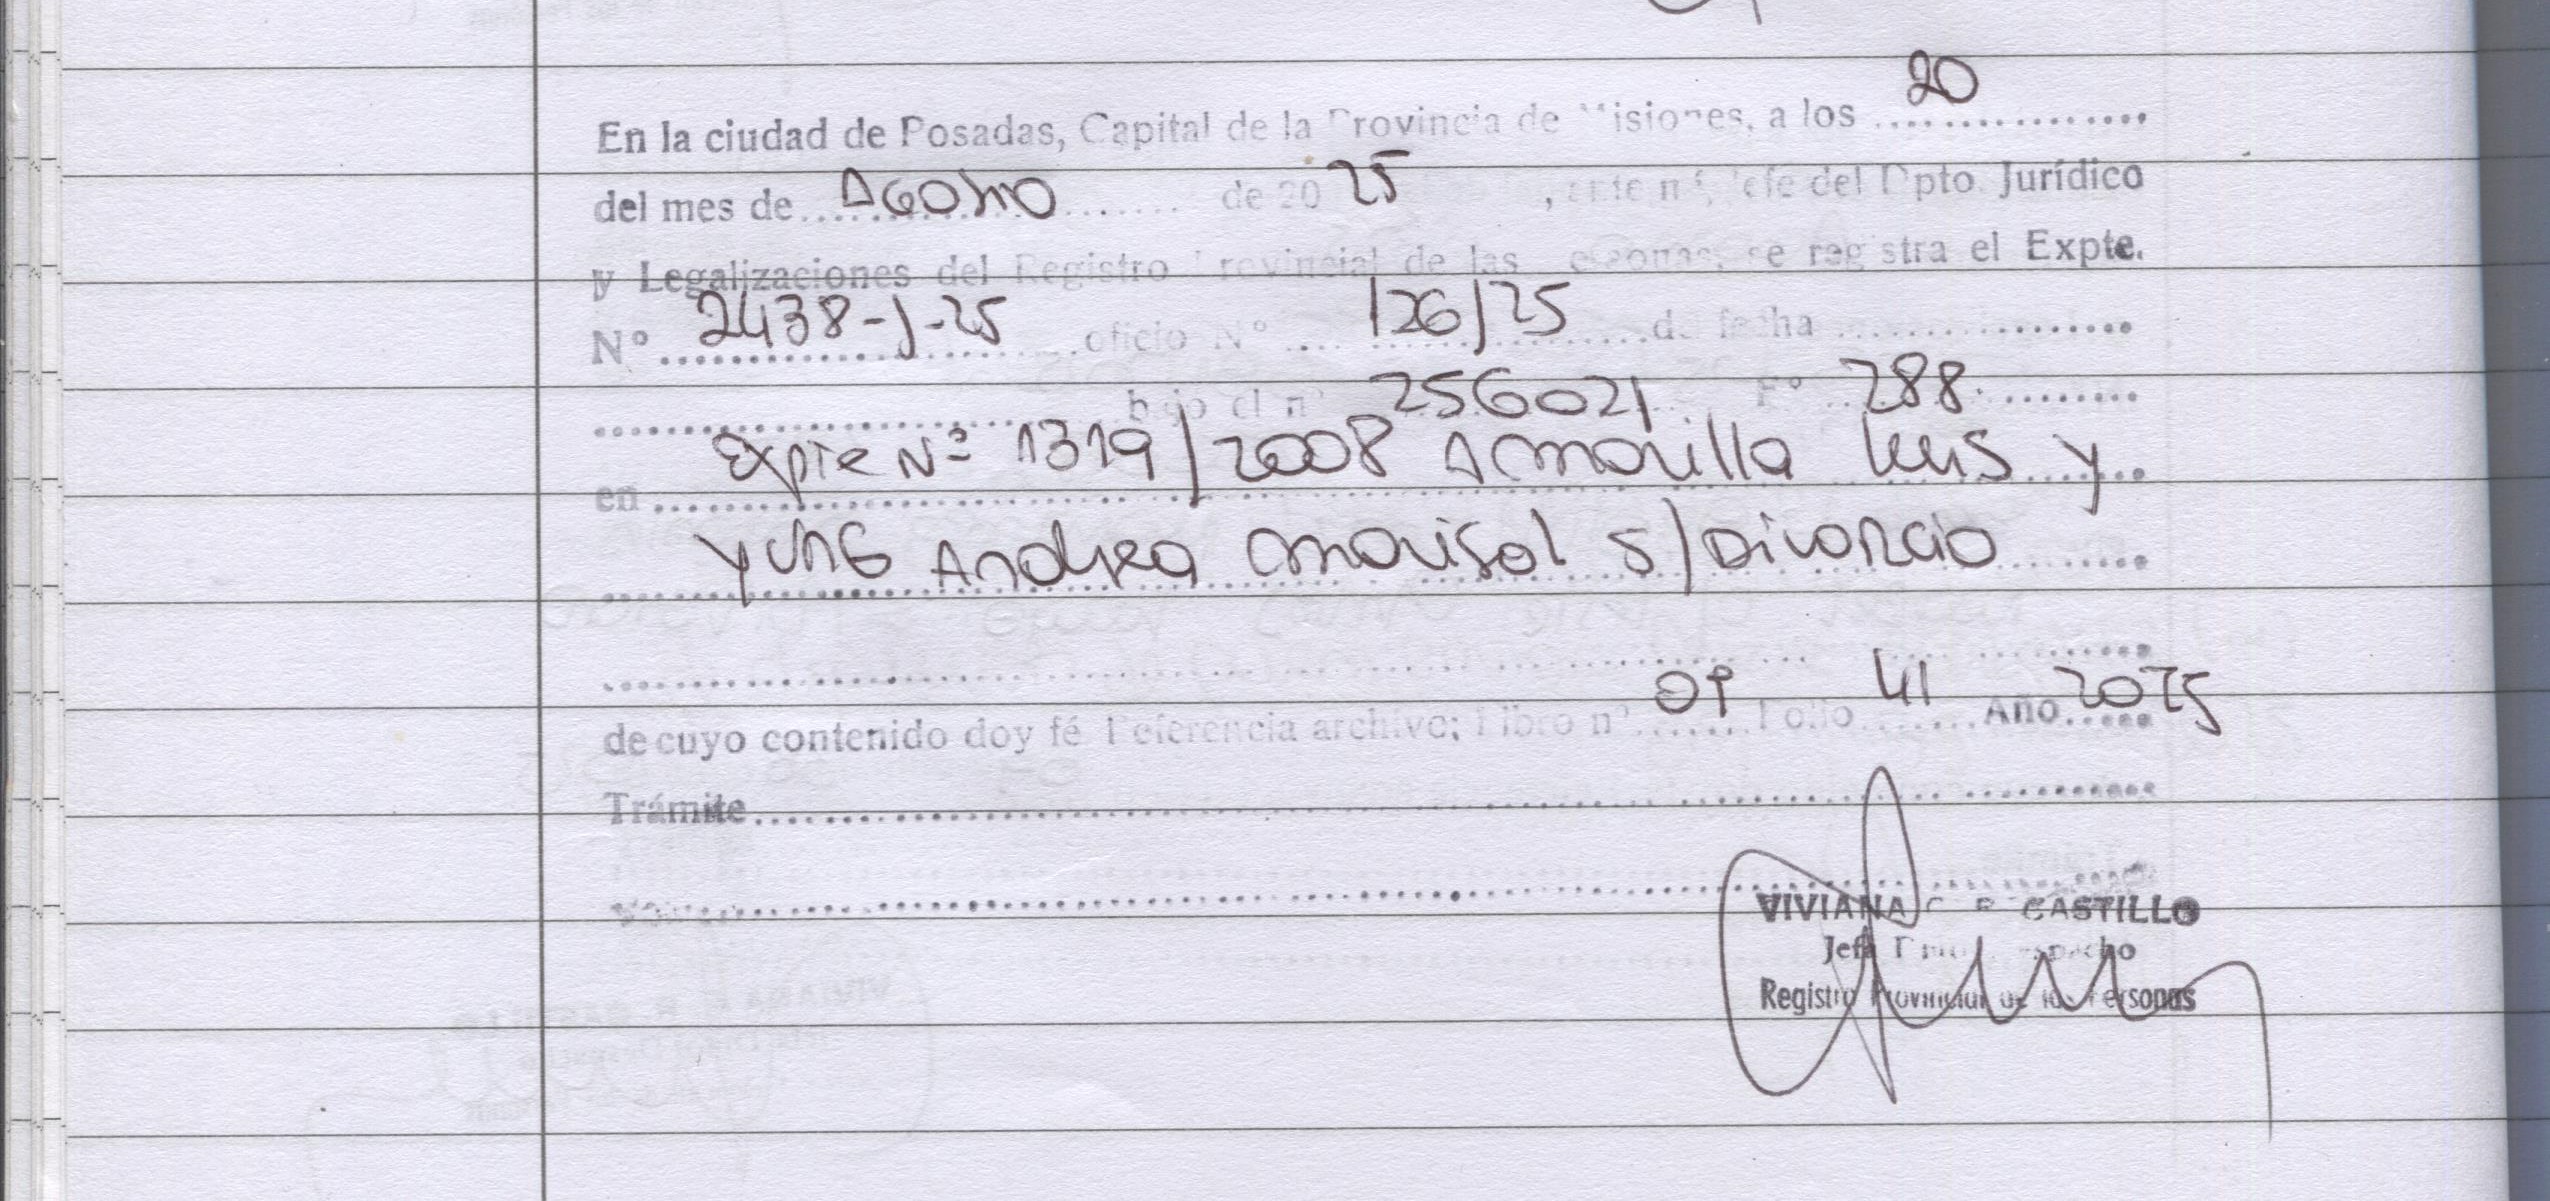 20
En la ciudad de Posadas, Capital de la Provincia de Misiones, a los
del mes de Agosto de 20 25, ante mí, Jefe del Dpto. Jurídico
y Legalizaciones del Registro Provincial de las Personas, se registra el Expte.
N° 2438-J-25 oficio N° 126/25 de fecha
bajo el n° 256021 F° 288
en Expte Nº 1319/2008 Amarilla Luis y
Yung Andrea Marisol S/Divorcio
de cuyo contenido doy fé Referencia archivo; Libro n° 09 Folio 41 Año 2025
Trámite
VIVIANA CASTILLO
Jefa Despacho
Registro Provincial de las Personas